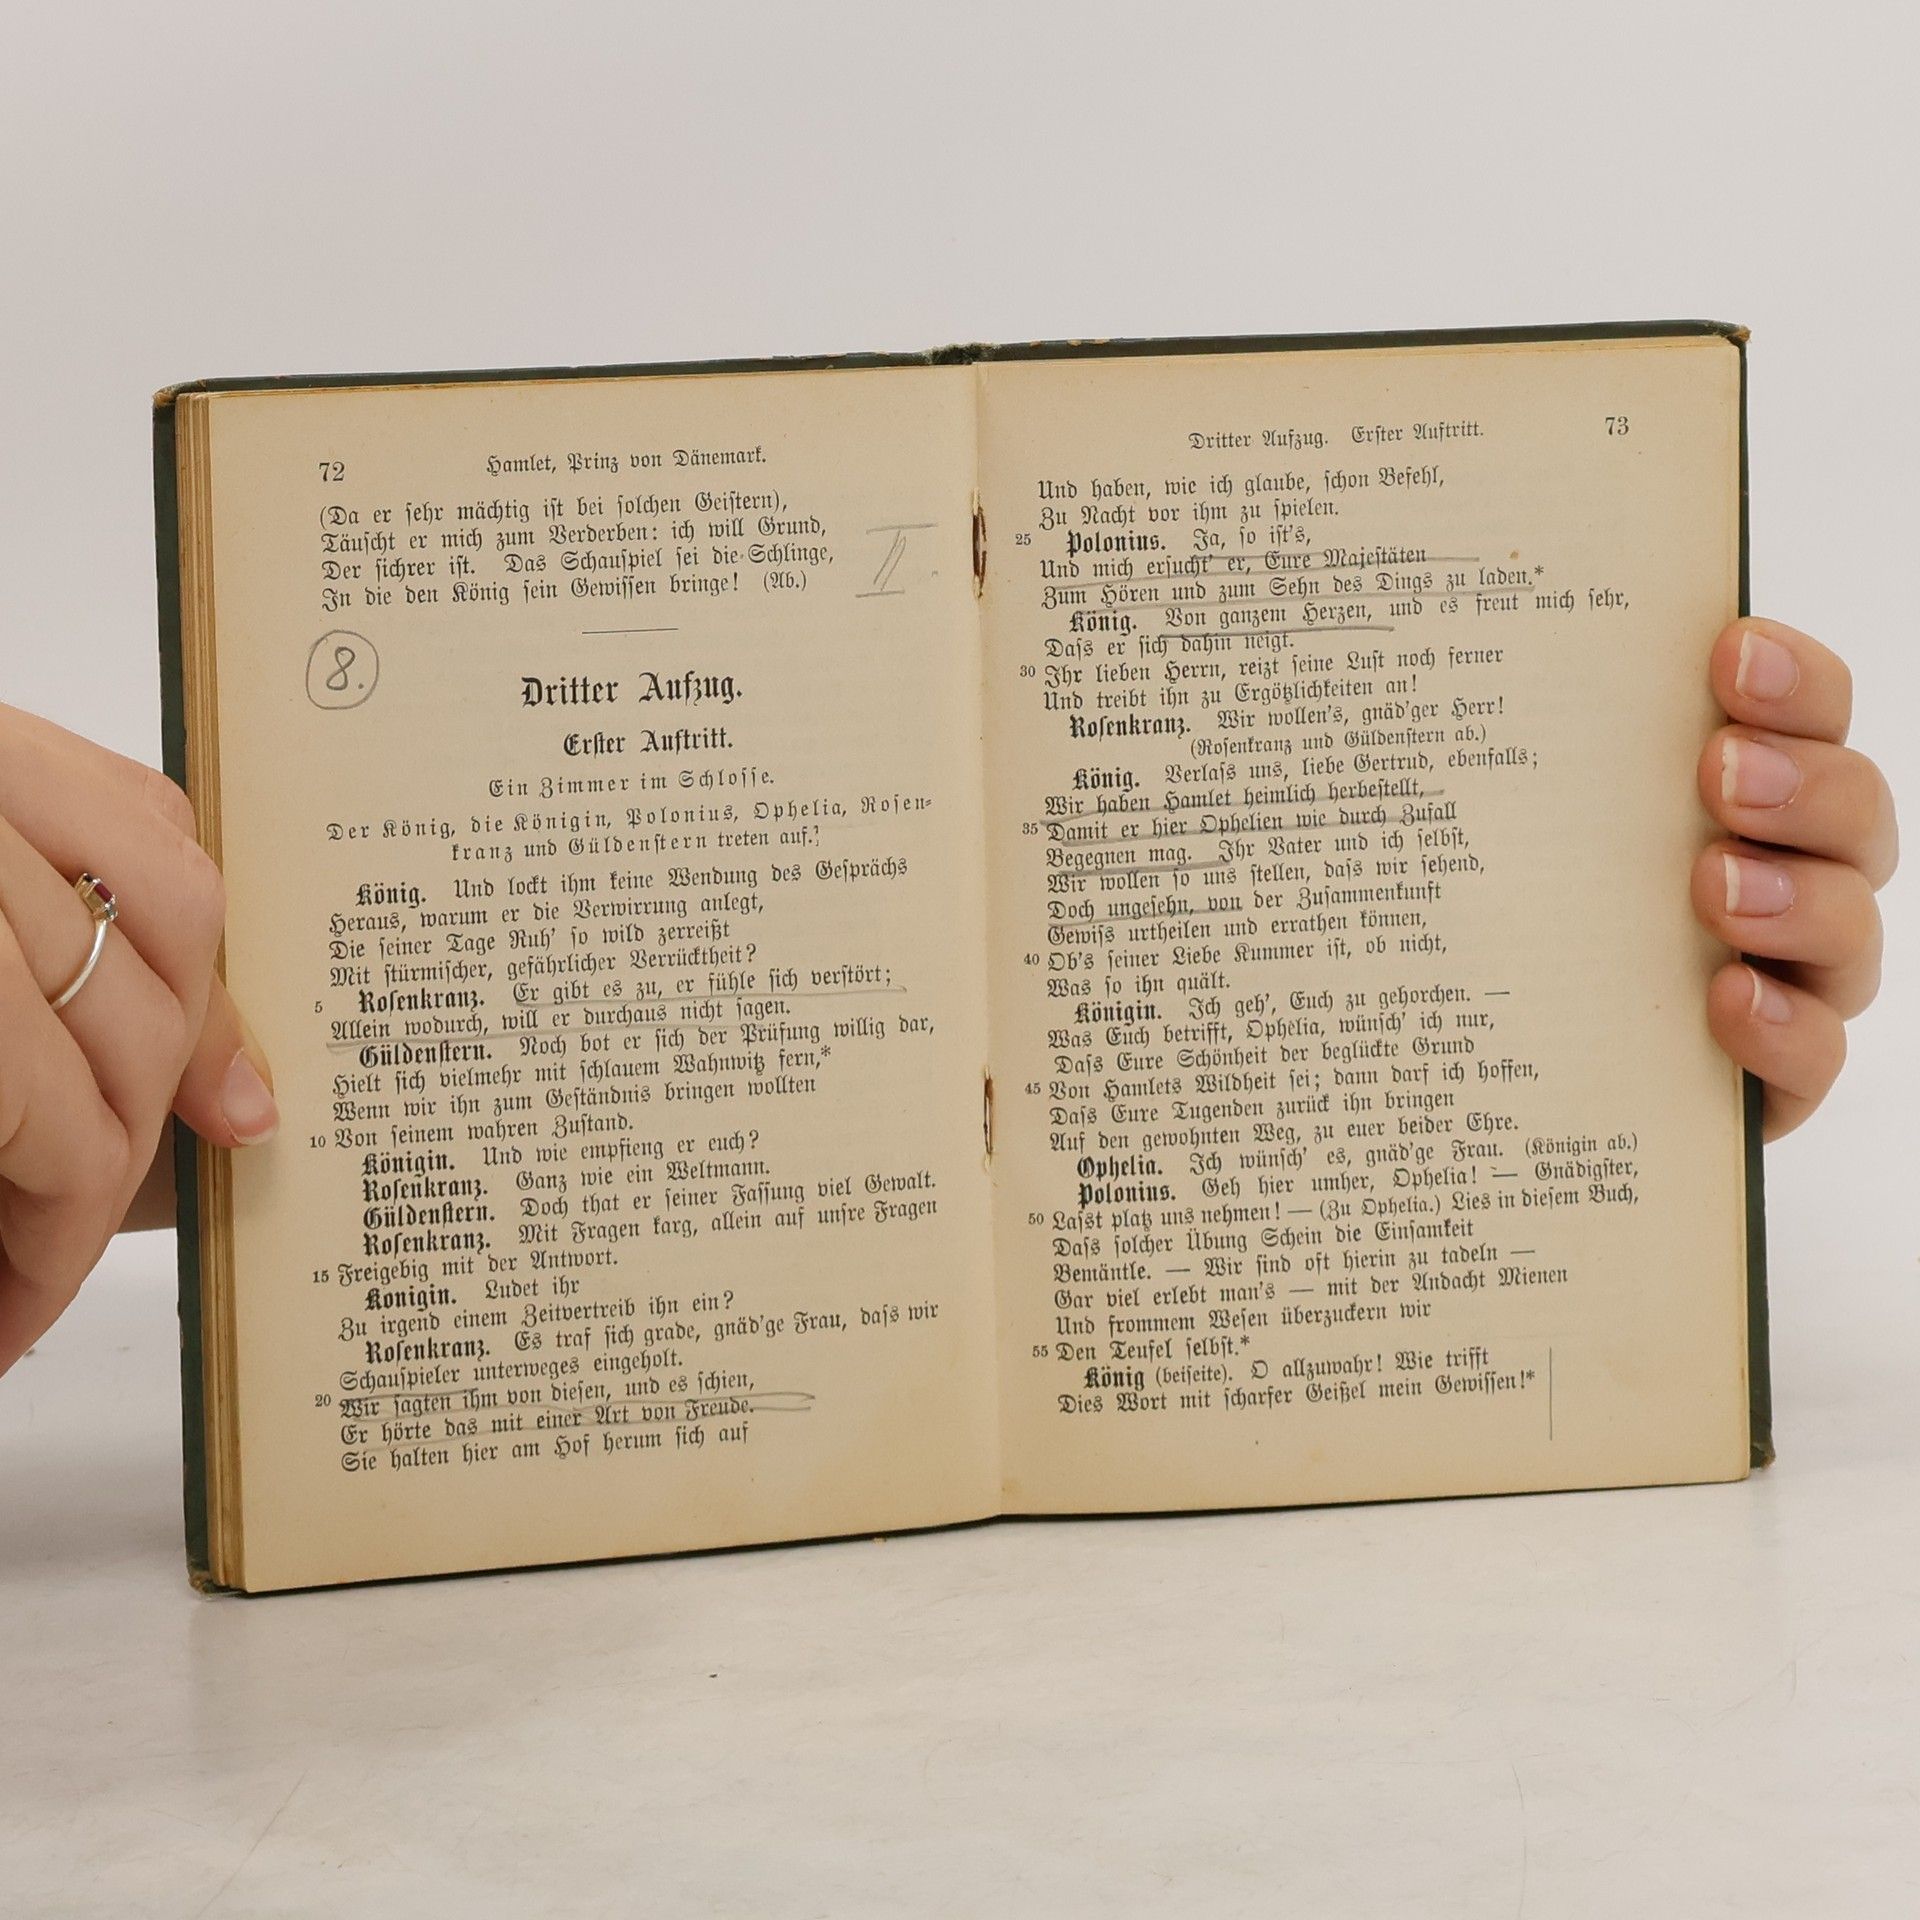 72 Hamlet, Prinz von Dänemark.
(Da er sehr mächtig ist bei solchen Geistern),
Täuscht er mich zum Verderben: ich will Grund,
Der sichrer ist. Das Schauspiel sei die Schlinge,
In die den König sein Gewissen bringe! (Ab.)
II.
8.
Dritter Aufzug.
Erster Auftritt.
Ein Zimmer im Schlosse.
Der König, die Königin, Polonius, Ophelia, Rosen-
kranz und Güldenstern treten auf.
König. Und lockt ihm keine Wendung des Gesprächs
Heraus, warum er die Verwirrung anlegt,
Die seiner Tage Ruh' so wild zerreißt
Mit stürmischer, gefährlicher Verrücktheit?
5 Rosenkranz. Er gibt es zu, er fühle sich verstört;
Allein wodurch, will er durchaus nicht sagen.
Güldenstern. Noch bot er sich der Prüfung willig dar,
Hielt sich vielmehr mit schlauem Wahnwitz fern,*
Wenn wir ihn zum Geständnis bringen wollten
10 Von seinem wahren Zustand.
Königin. Und wie empfieng er euch?
Rosenkranz. Ganz wie ein Weltmann.
Güldenstern. Doch that er seiner Fassung viel Gewalt.
Rosenkranz. Mit Fragen karg, allein auf unsre Fragen
15 Freigebig mit der Antwort.
Konigin. Ludet ihr
Zu irgend einem Zeitvertreib ihn ein?
Rosenkranz. Es traf sich grade, gnäd'ge Frau, dass wir
Schauspieler unterweges eingeholt.
20 Wir sagten ihm von diesen, und es schien,
Er hörte das mit einer Art von Freude.
Sie halten hier am Hof herum sich auf
Dritter Aufzug. Erster Auftritt. 73
Und haben, wie ich glaube, schon Befehl,
Zu Nacht vor ihm zu spielen.
25 Polonius. Ja, so ist's,
Und mich ersucht' er, Eure Majestäten
Zum Hören und zum Sehn des Dings zu laden.*
König. Von ganzem Herzen, und es freut mich sehr,
Dass er sich dahin neigt.
30 Ihr lieben Herrn, reizt seine Lust noch ferner
Und treibt ihn zu Ergötzlichkeiten an!
Rosenkranz. Wir wollen's, gnäd'ger Herr!
(Rosenkranz und Güldenstern ab.)
König. Verlass uns, liebe Gertrud, ebenfalls;
Wir haben Hamlet heimlich herbestellt,
35 Damit er hier Ophelien wie durch Zufall
Begegnen mag. Ihr Vater und ich selbst,
Wir wollen so uns stellen, dass wir sehend,
Doch ungesehn, von der Zusammenkunft
Gewiss urtheilen und errathen können,
40 Ob's seiner Liebe Kummer ist, ob nicht,
Was so ihn quält.
Königin. Ich geh', Euch zu gehorchen. —
Was Euch betrifft, Ophelia, wünsch' ich nur,
Dass Eure Schönheit der beglückte Grund
45 Von Hamlets Wildheit sei; dann darf ich hoffen,
Dass Eure Tugenden zurück ihn bringen
Auf den gewohnten Weg, zu euer beider Ehre.
Ophelia. Ich wünsch' es, gnäd'ge Frau. (Königin ab.)
Polonius. Geh hier umher, Ophelia! — Gnädigster,
50 Lasst platz uns nehmen! — (Zu Ophelia.) Lies in diesem Buch,
Dass solcher Übung Schein die Einsamkeit
Bemäntle. — Wir sind oft hierin zu tadeln —
Gar viel erlebt man's — mit der Andacht Mienen
Und frommem Wesen überzuckern wir
55 Den Teufel selbst.*
König (beiseite). O allzuwahr! Wie trifft
Dies Wort mit scharfer Geißel mein Gewissen!*